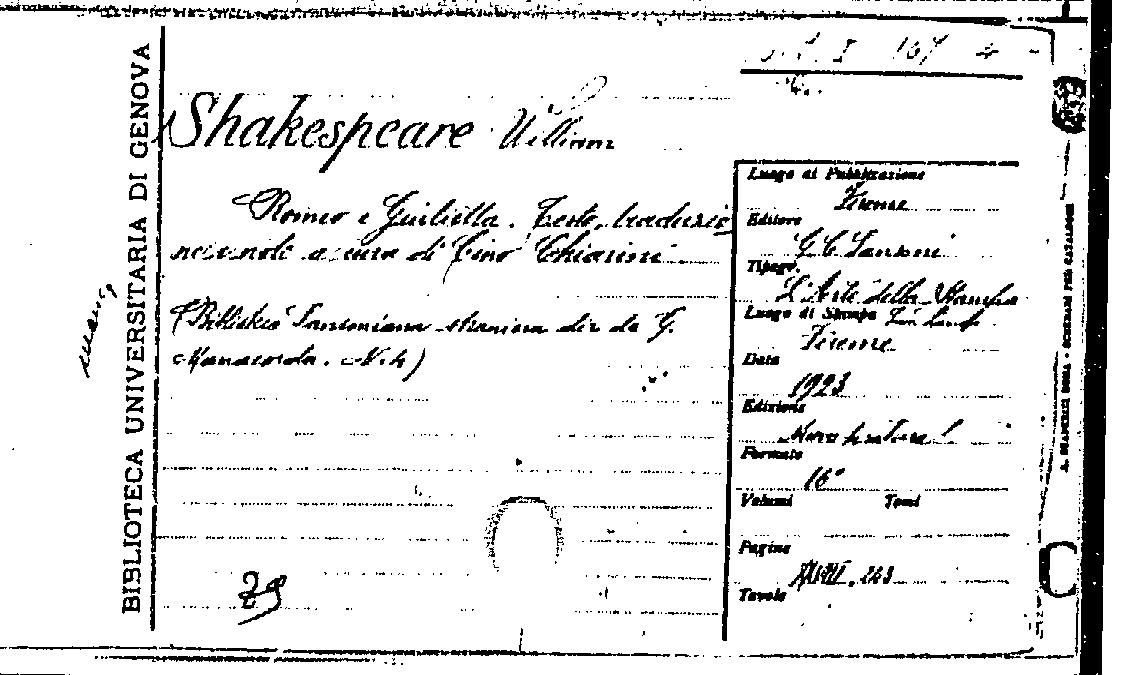 BIBLIOTECA UNIVERSITARIA DI GENOVA
167
Shakespeare William
Romeo e Giulietta. Testo, traduzio
ne e note a cura di Cino Chiarini
(Biblioteca Sansoniana straniera dir. da G.
Manacorda. N. 4)
29
Luogo di Pubblicazione
Firenze
Editore
G. C. Sansoni
Tipogr.
L'Arte della Stampa
Luogo di Stampa
Firenze
Data
1923
Edizione
Formato
16°
Volumi Tomi
Pagine
XLVIII, 263
Tavole